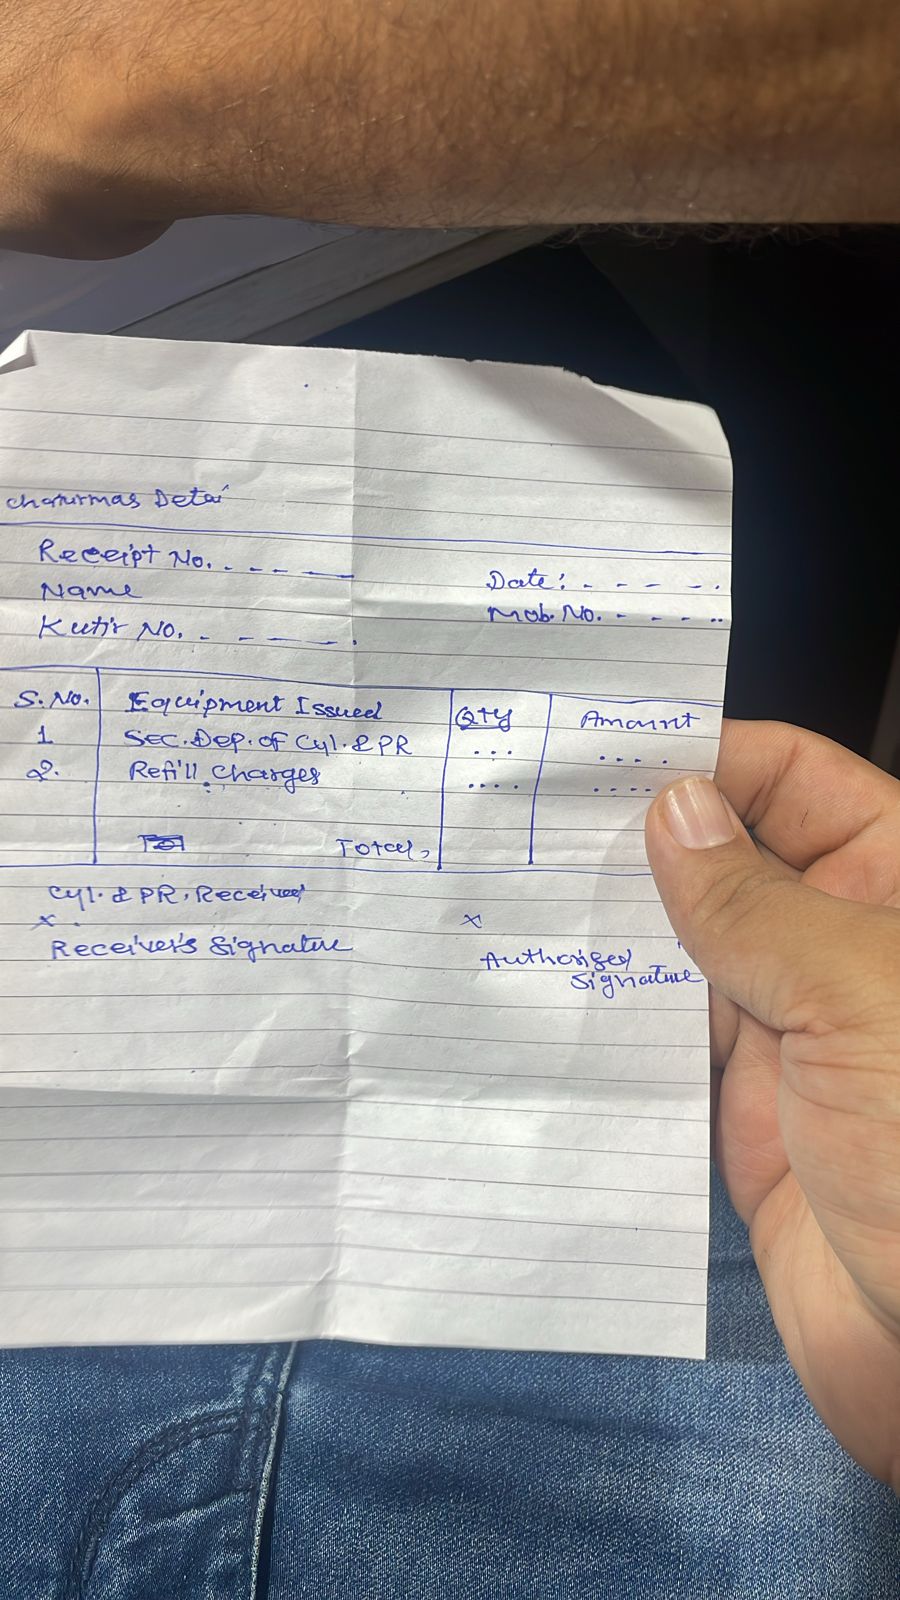 Chaturmas Detai
Receipt No. - - - -
Date: - - - - .
Name
Mob. No. - - - - ..
Kutir No. - - - - .
S. No. Equipment Issued Qty Amount
1 Sec. Dep. of Cyl. & PR ... ....
2. Refill Charges .... ....
Total,
Cyl. & PR. Received
x . x
Receiver's Signature Authorised
Signature